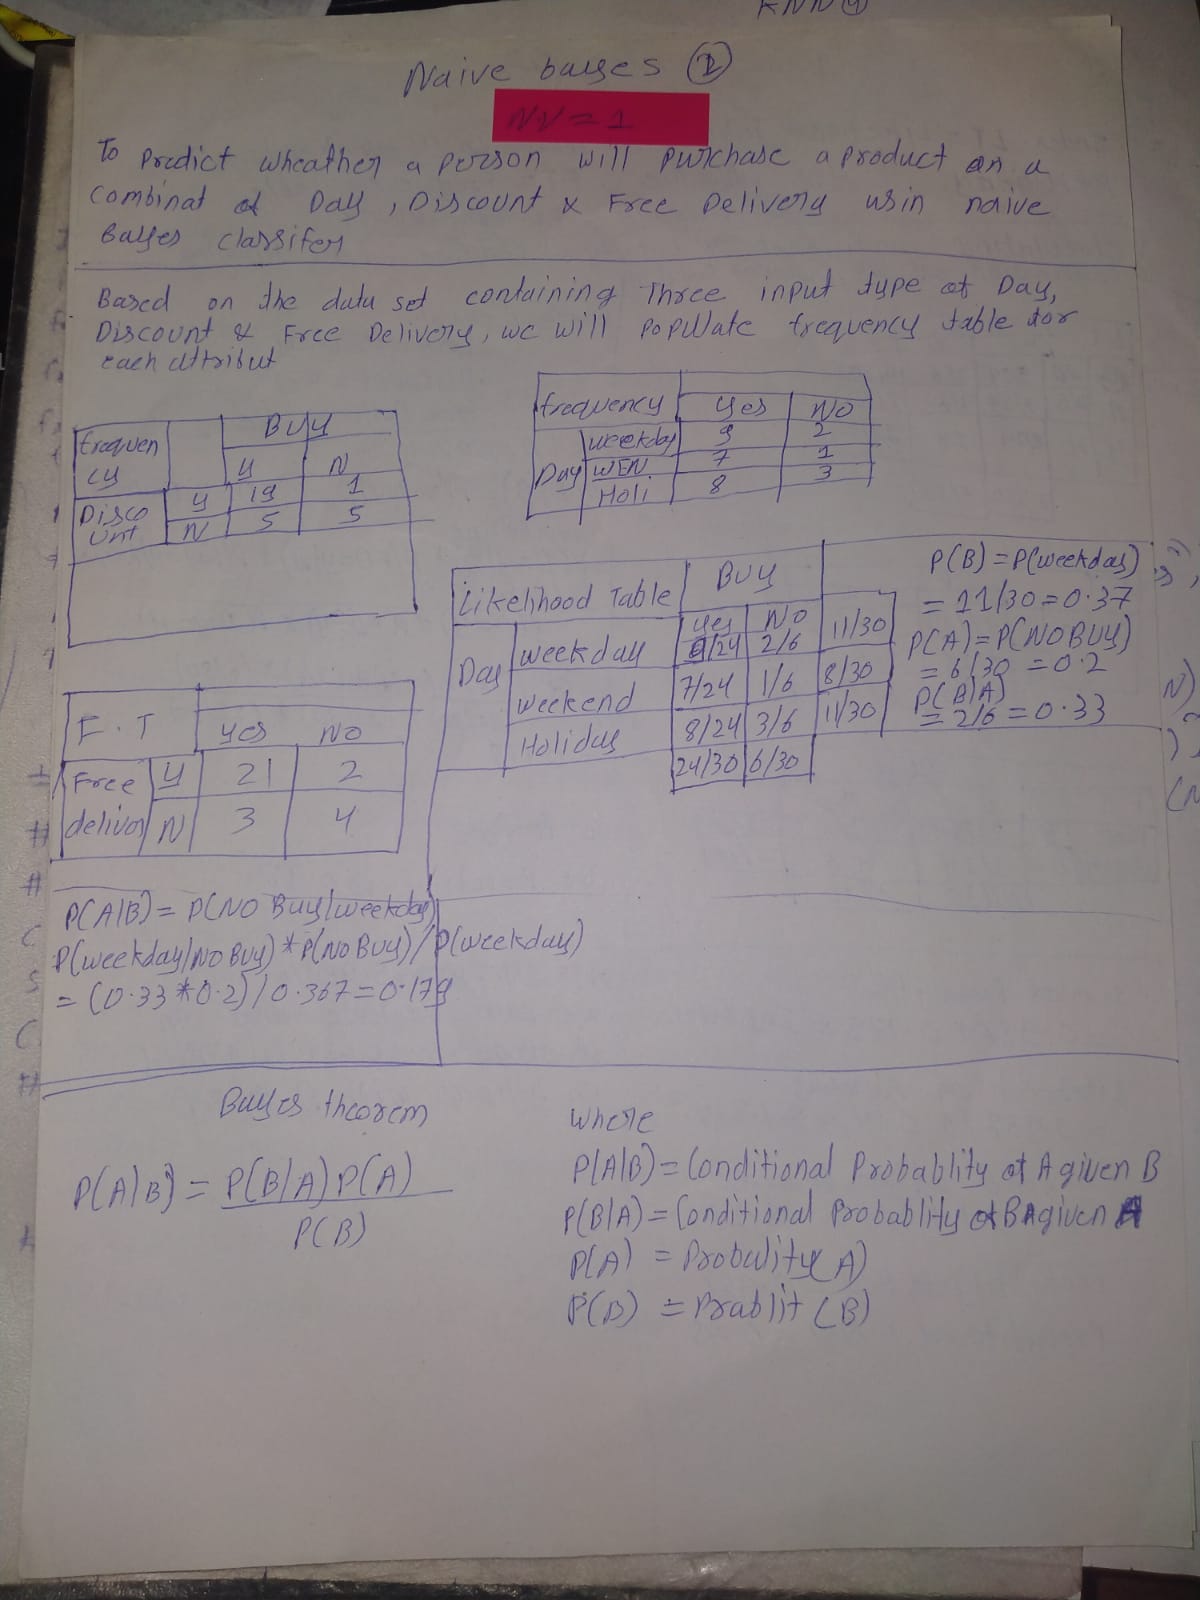 KNN 4
Naive bayes 1
NV = 1
To Predict wheather a person will purchase a product on a
Combinat of Day, Discount & Free Delivery usin naive
Bayes classifer
Based on the data set containing Three input type of Day,
Discount & Free Delivery, we will Populate frequency table for
each attribut
frequency Yes No
Day weekday 9 2
WEN 7 1
Holi 8 3
frequen
cy
Buy
Y N
Disco
unt
Y 19 1
N 5 5
Likelihood Table Buy
Yes No
Day weekday 9/24 2/6 11/30
weekend 7/24 1/6 8/30
Holiday 8/24 3/6 11/30
24/30 6/30
P(B) = P(weekday)
= 11/30 = 0.37
P(A) = P(NO BUY)
= 6/30 = 0.2
P(B|A)
= 2/6 = 0.33
F.T Yes No
Free Y 21 2
deliver N 3 4
P(A|B) = P(NO Buy|weekday)
P(weekday|NO BUY) * P(NO BUY) / P(weekday)
= (0.33 * 0.2) / 0.367 = 0.179
Bayes theorem
P(A|B) = P(B|A) P(A)
P(B)
where
P(A|B) = Conditional Probablity of A given B
P(B|A) = Conditional Probablity of B given A
P(A) = Probality (A)
P(B) = Prablit (B)